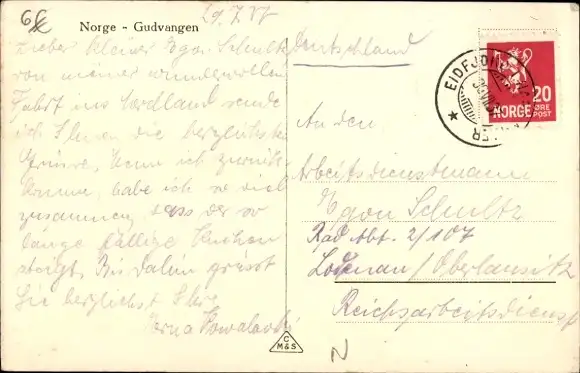 Norge - Gudvangen
29.7.37
Lieber kleiner Egon Schultz
von meiner wundervollen
Fahrt ins Nordland sende
ich Ihnen die herzlichsten
Grüsse, wenn ich zurück
komme, habe ich so viel
zusammen, dass der so
lange fällige
steigt. Bis dahin grüsst
Sie herzlichst Ihre
Erna Kowalewski
Deutschland
An den
Arbeitsdienstmann
Egon Schultz
Rad Abt. 2/107
Lodenau/Oberlausitz
Reichsarbeitsdienst
EIDFJORD
NORGE 20
ØRE
POST
C
M&S
N